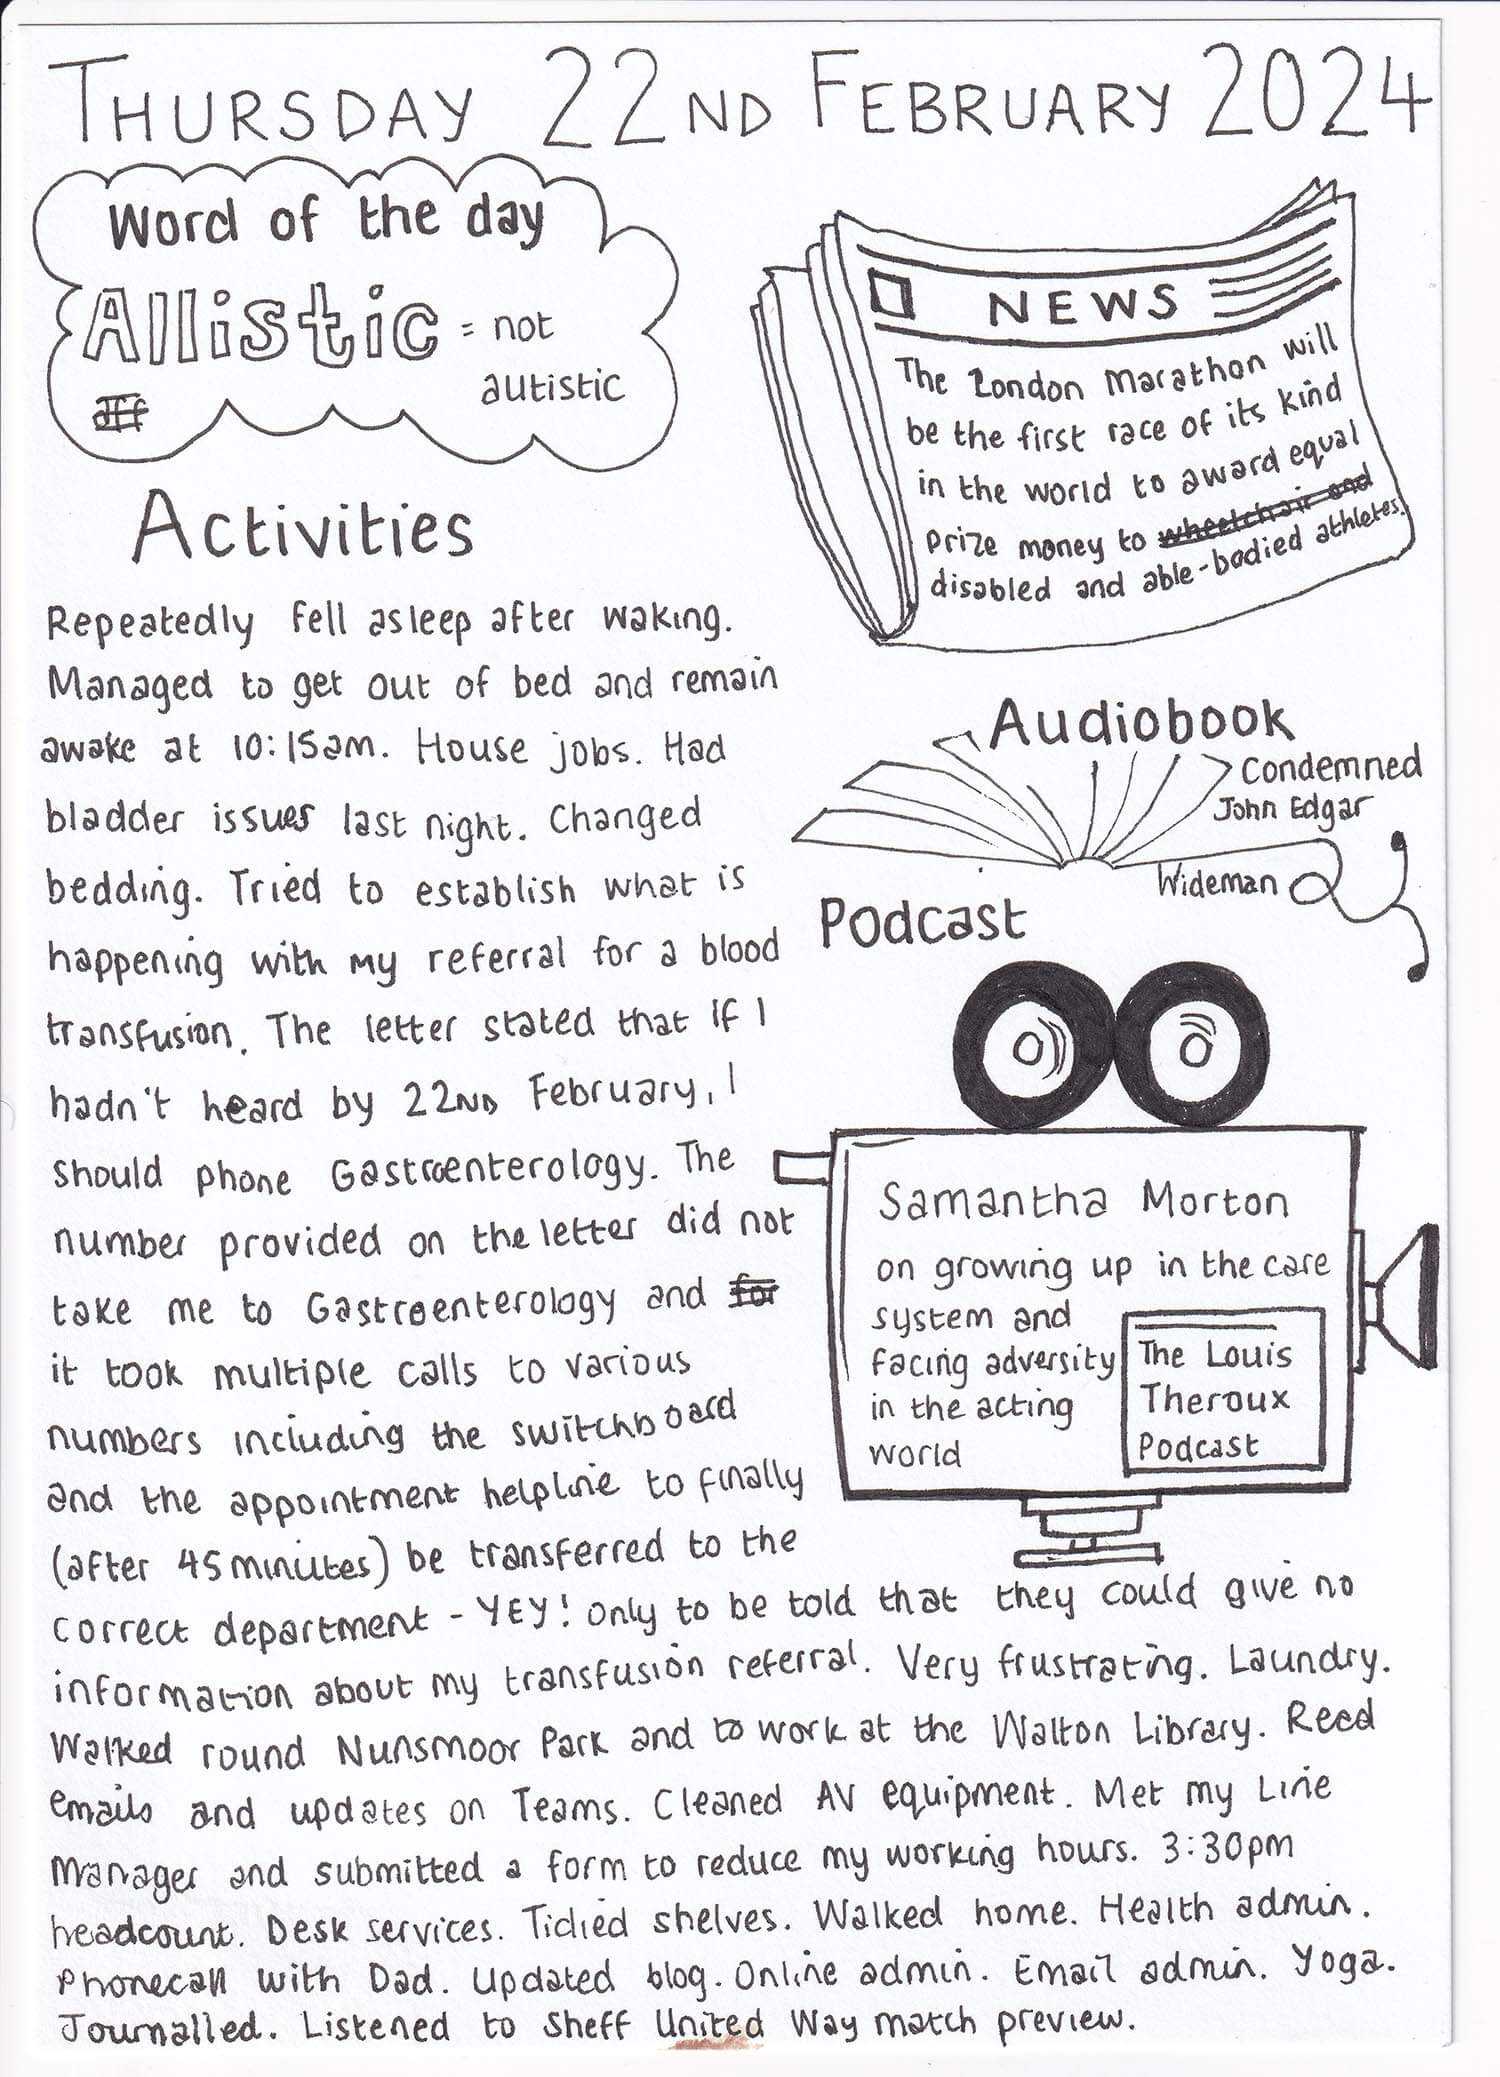 THURSDAY 22ND FEBRUARY 2024
Word of the day
Allistic = not
autistic
NEWS
The London Marathon will
be the first race of its kind
in the world to award equal
prize money to wheelchair and
disabled and able-bodied athletes.
Activities
Repeatedly fell asleep after waking.
Managed to get out of bed and remain
awake at 10:15am. House jobs. Had
bladder issues last night. Changed
bedding. Tried to establish what is
happening with my referral for a blood
transfusion. The letter stated that if I
hadn't heard by 22ND February, I
should phone Gastroenterology. The
number provided on the letter did not
take me to Gastroenterology and for
it took multiple calls to various
numbers including the switchboard
and the appointment helpline to finally
(after 45 minutes) be transferred to the
correct department - YEY! Only to be told that they could give no
information about my transfusion referral. Very frustrating. Laundry.
Walked round Nunsmoor Park and to work at the Walton Library. Read
emails and updates on Teams. Cleaned AV equipment. Met my Line
Manager and submitted a form to reduce my working hours. 3:30pm
headcount. Desk services. Tidied shelves. Walked home. Health admin.
Phonecall with Dad. Updated blog. Online admin. Email admin. Yoga.
Journalled. Listened to Sheff United Way match preview.
Audiobook
Condemned
John Edgar
Wideman
Podcast
Samantha Morton
on growing up in the care
system and
facing adversity
in the acting
world
The Louis
Theroux
Podcast